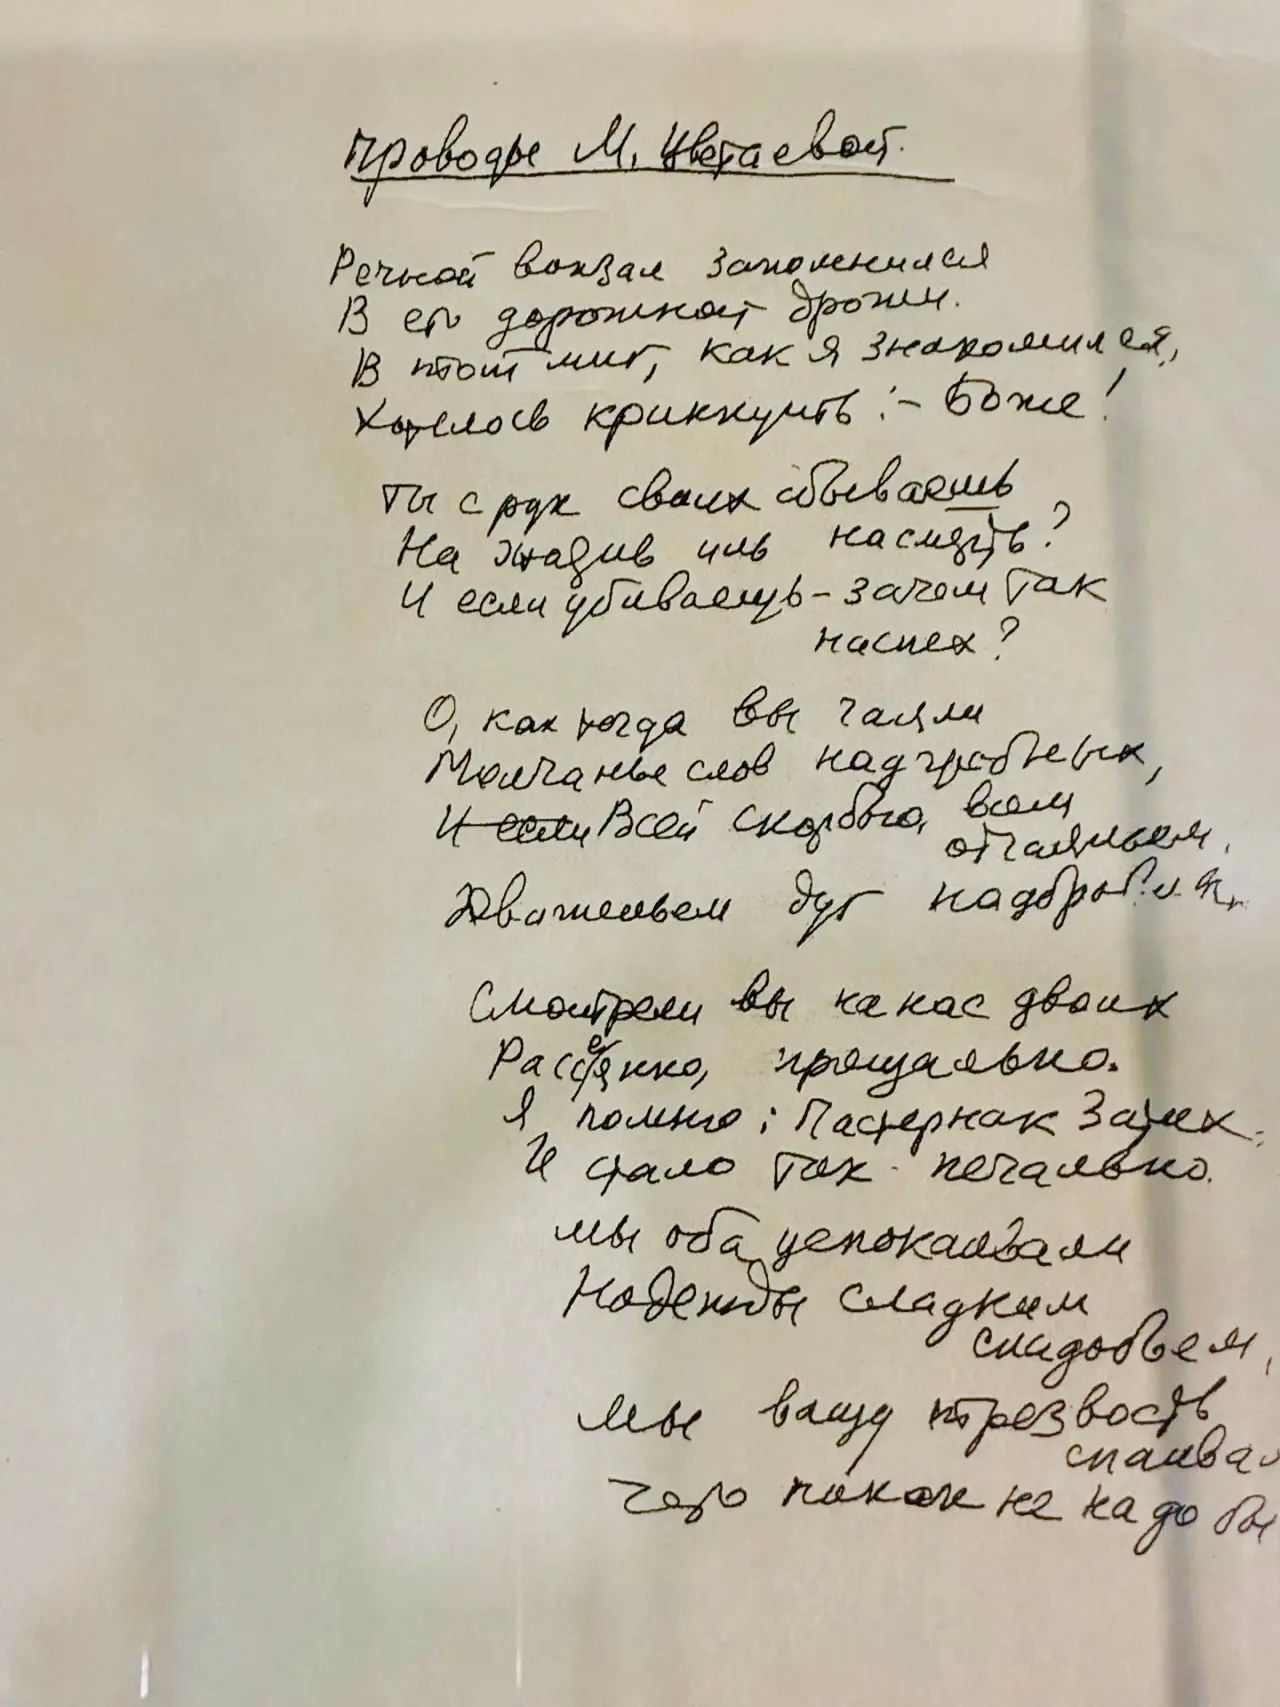 Проводы М. Цветаевой.
Речной вокзал запомнился
В его дорожной дрожи.
В тот миг, как я знакомился,
Хотелось крикнуть: – Боже!
Ты с рук своих сбываешь
На     иль         ?
И если убиваешь – зачем так
наспех?
О, как тогда вы чаяли
Молчанье слов надгробных,
И если Всей скорбью, всем
отчаяньем,
Движеньем губ
Смотрели вы на нас двоих
Рассеянно, прощально.
Я помню: Пастернак затих
И стало так печально.
Мы оба успокаивали
Надежды сладким
снадобьем,
Мы вашу трезвость
спаива
Чего пока не надо бы